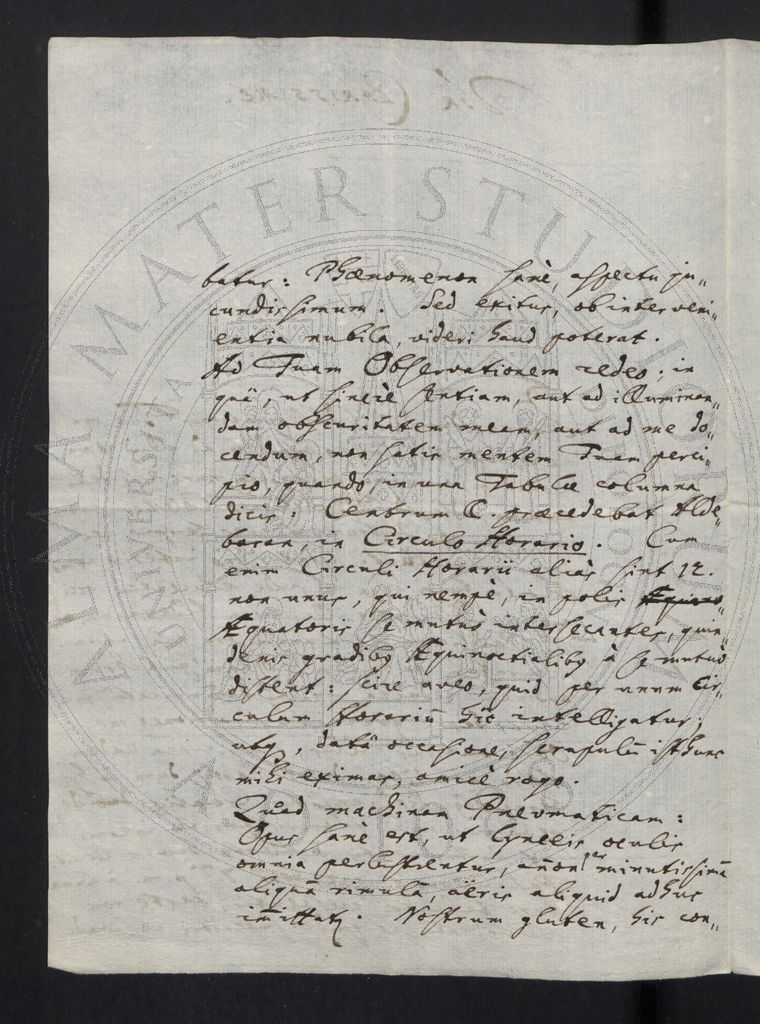 batur: Phænomenon sanè, aspectu ju„
cundissimum. Sed exitus, ob interveni„
entia nubila, videri haud poterat.
Ad Tuam Observationem redeo; in
quâ, ut sincerè sentiam, aut ad illuminan„
dam obscuritatem meam, aut ad me do„
cendum, non satis mentem Tuam perci„
pio, quando, in una Tabulæ columna
dicis: Centrum ☾. præcedebat Alde„
baran, in Circulo Horario. Cum
enim Circuli Horarii aliàs sint 12.
non unus, qui nempè, in polis
Æquatoris se mutuò intersecantes, quin„
denis gradibꝫ Æquinoctialibꝫ à se mutuò
distent: scire aveo, quid per unum Cir„
culum Horariū hîc intelligatur;
utqꝫ, datâ occasione, scrupulū isthunc
mihi eximas, amicè rogo.
Quoad machinam Pnevmaticam:
Opus sanè est, ut Lynceis oculis
omnia perlustrentur, añon per minutissimā
aliquā rimulā, aëris aliquid adhuc
im̄ittatꝫ. Nostrum gluten, hîc con„
ALMA MATER STUDIORUM
UNIVERSITÀ